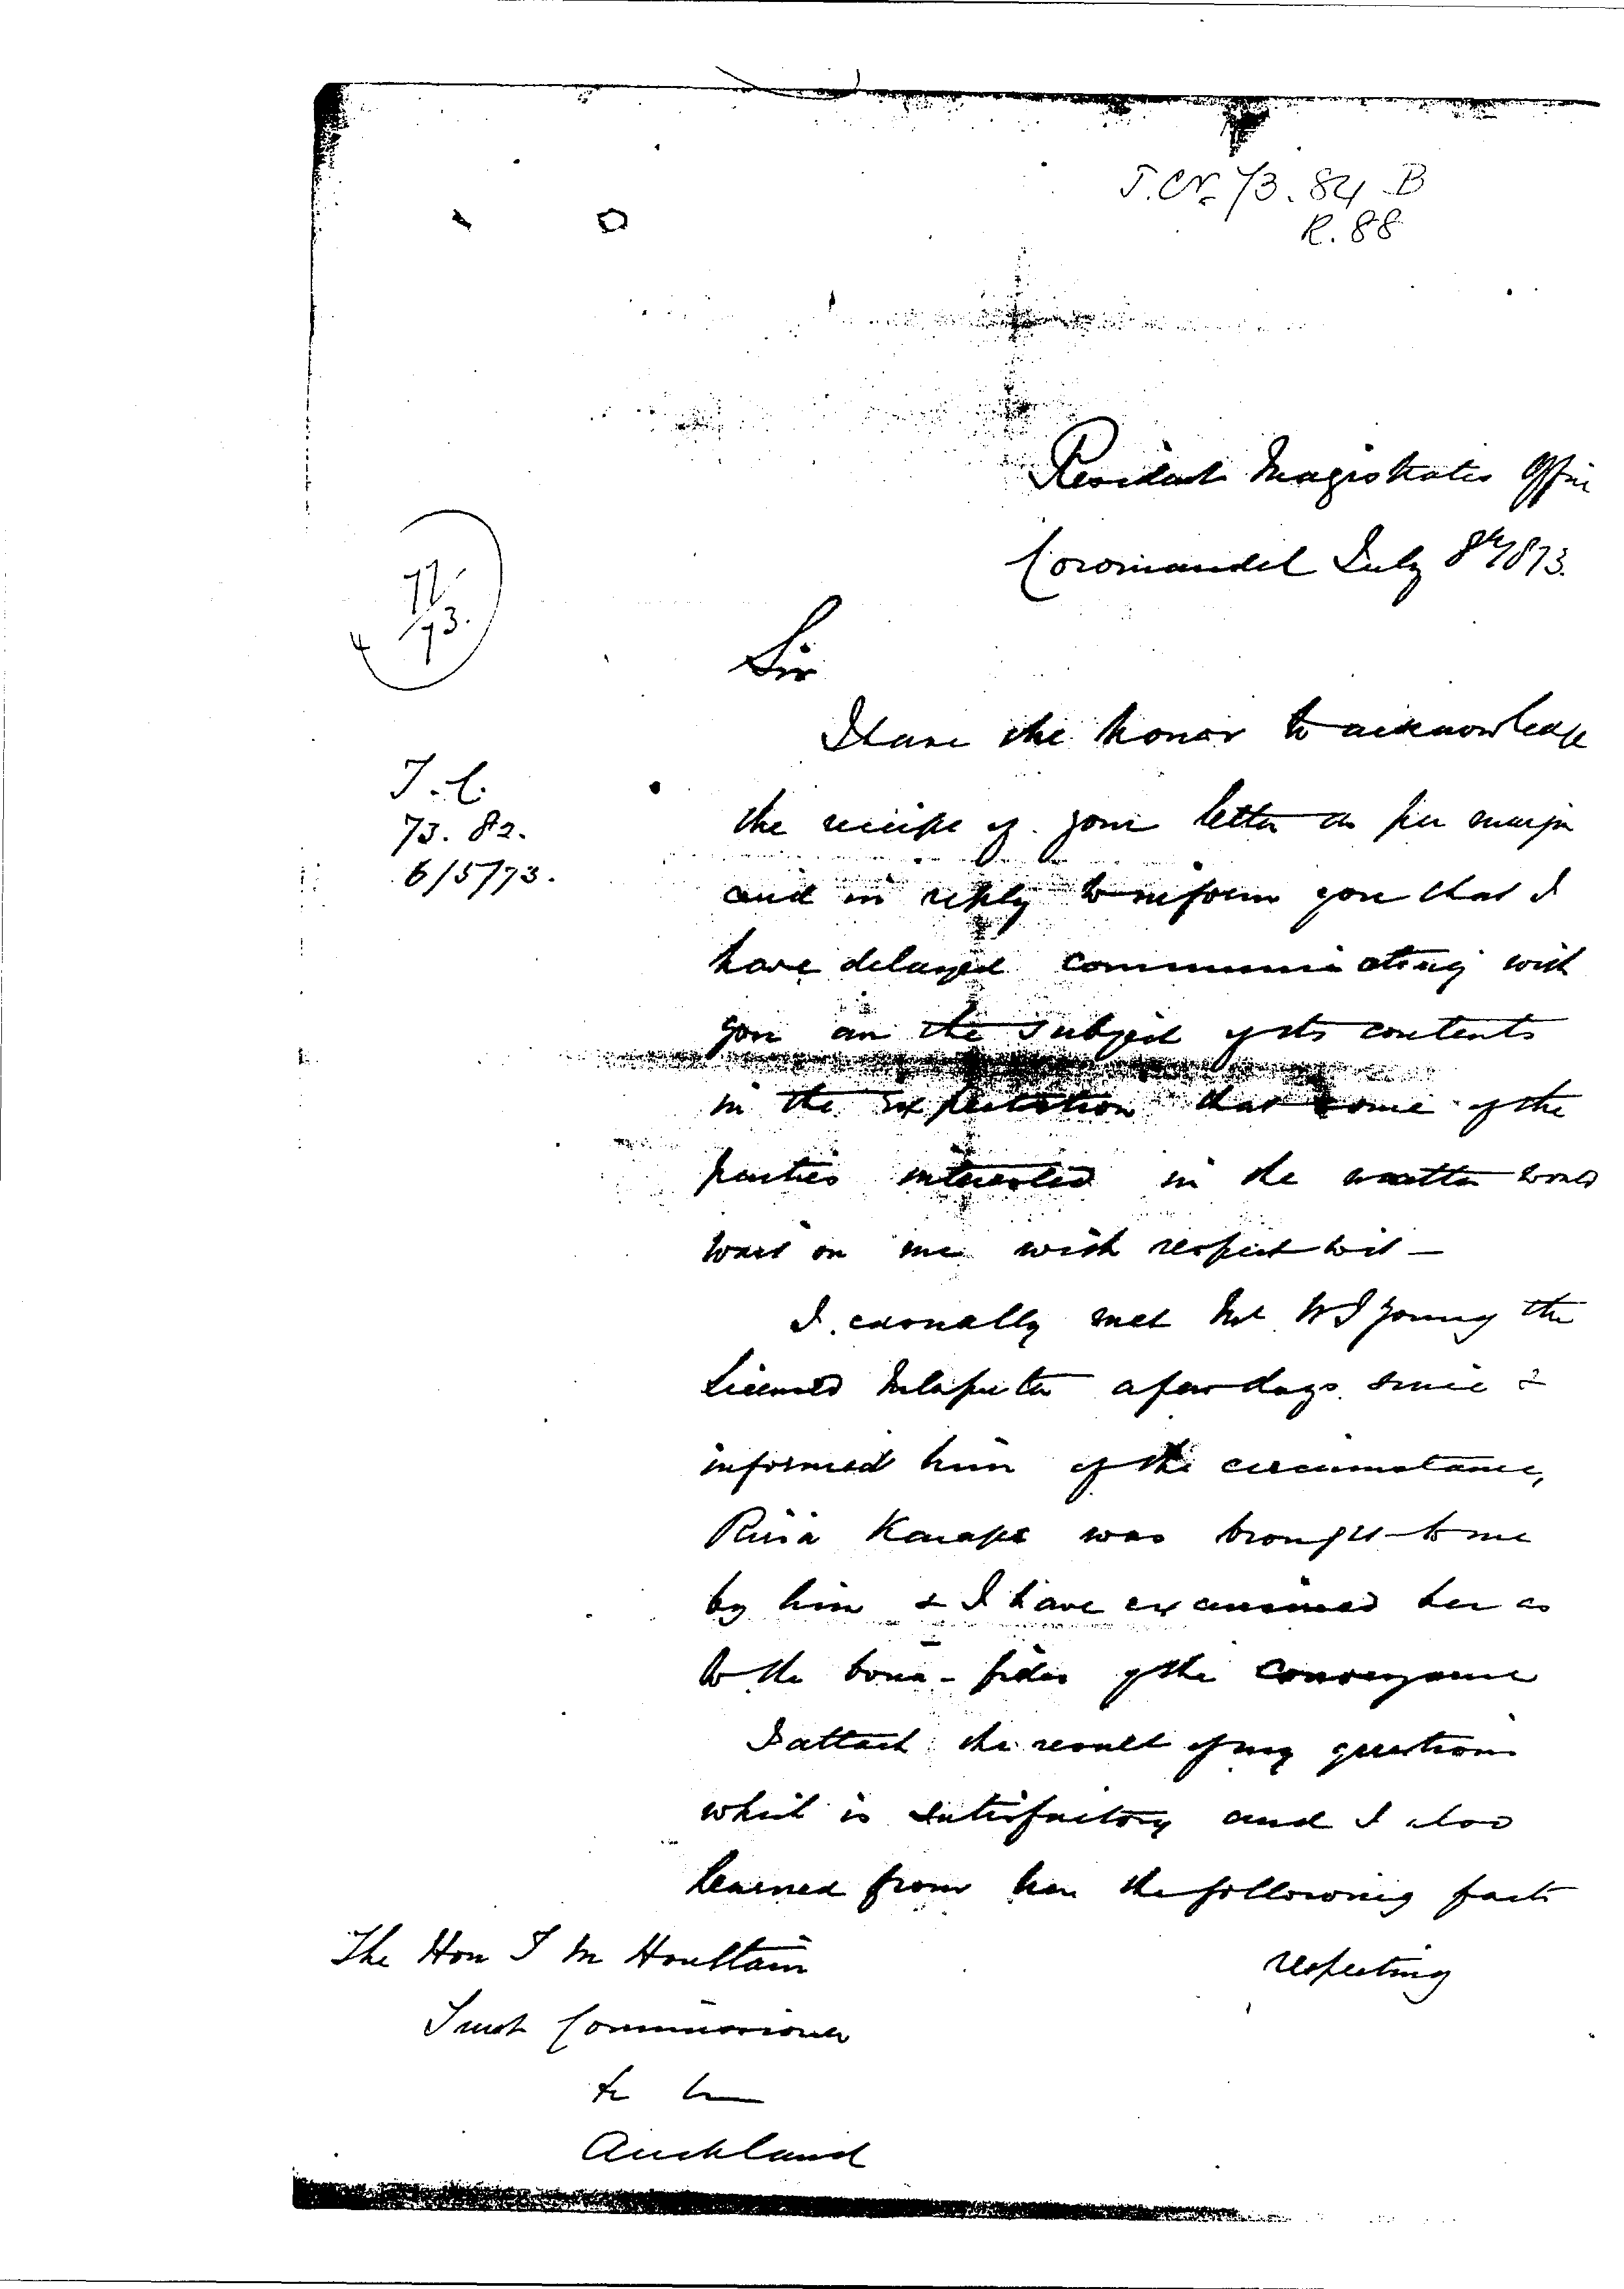 T.Cr. 73.84 B
R. 88
Resident Magistrates Office
Coromandel July 8th 1873.
11/73.
Sir
I have the honor to acknowledge
T.C.
73. 82.
6/5/73.
the receipt of your letter as per margin
and in reply to inform you that I
have delayed communicating with
you on the subject of its contents
in the expectation that some of the
parties interested in the matter would
wait on me with respect to it —
I casually met Mr W I Young the
Licensed Interpreter a few days since &
informed him of the circumstance,
Riria Karape was brought to me
by him & I have examined her as
to the bona-fides of the conveyance
I attach the result of my questions
which is satisfactory and I also
learned from her the following facts
respecting
The Hon T M Haultain
Trust Commissioner
&c &c
Auckland